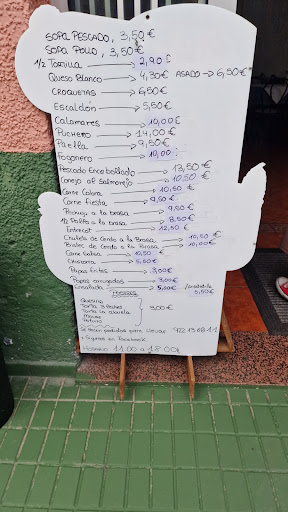 SOPA PESCADO, 3,50 €
SOPA POLLO, 3,50 €
1/2 TORTILLA → 2,90 €
QUESO BLANCO → 4,30€ ASADO → 6,50€
CROQUETAS → 6,50€
ESCALDÓN → 5,50€
CALAMARES → 10,00€
PUCHERO → 14,00 €
PAELLA → 9,50€
FOGONERO → 10,00
PESCADO ENCEBOLLADO → 13,50 €
CONEJO AL SALMOREJO → 10,50 €
CARNE CABRA → 10,50 €
CARNE FIESTA → 9,50 €
PECHUGA A LA BRASA → 9,50€
1/2 POLLO A LA BRASA → 8,50€
ENTRECOT → 12,50€
CHULETA DE CERDO A LA BRASA → 10,50 €
BISTEC DE CERDO A LA BRASA → 10,00€
CARNE → 10,50 €
CHISTORRA → 5,50€
PAPAS FRITAS → 3,00€
PAPAS ARRUGADAS → 3,00€
ENSALADA → 5,00€
5,50€
POSTRES
QUESILLO
TARTA 3 LECHES
TARTA LA ABUELA
3,00€
SE HACEN PEDIDOS PARA LLEVAR 922
SIGUENOS EN FACEBOOK
HORARIO 11:00 A 18:00